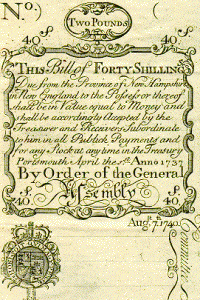 N.º:
TWO POUNDS
THIS Bill of FORTY SHILLINGS
Due from the Province of New Hampshire
in New England to the Possessor thereof
shall be in Value equal to Money and
shall be accordingly Accepted by the
Treasurer and Receivers Subordinate
to him in all Publick Payments and
for any Stock at any time in the Treasury
Portsmouth April the 1st Anno 1737
By Order of the General
Assembly
40 S. 40 S.
Aug. 7th 1740
Committee